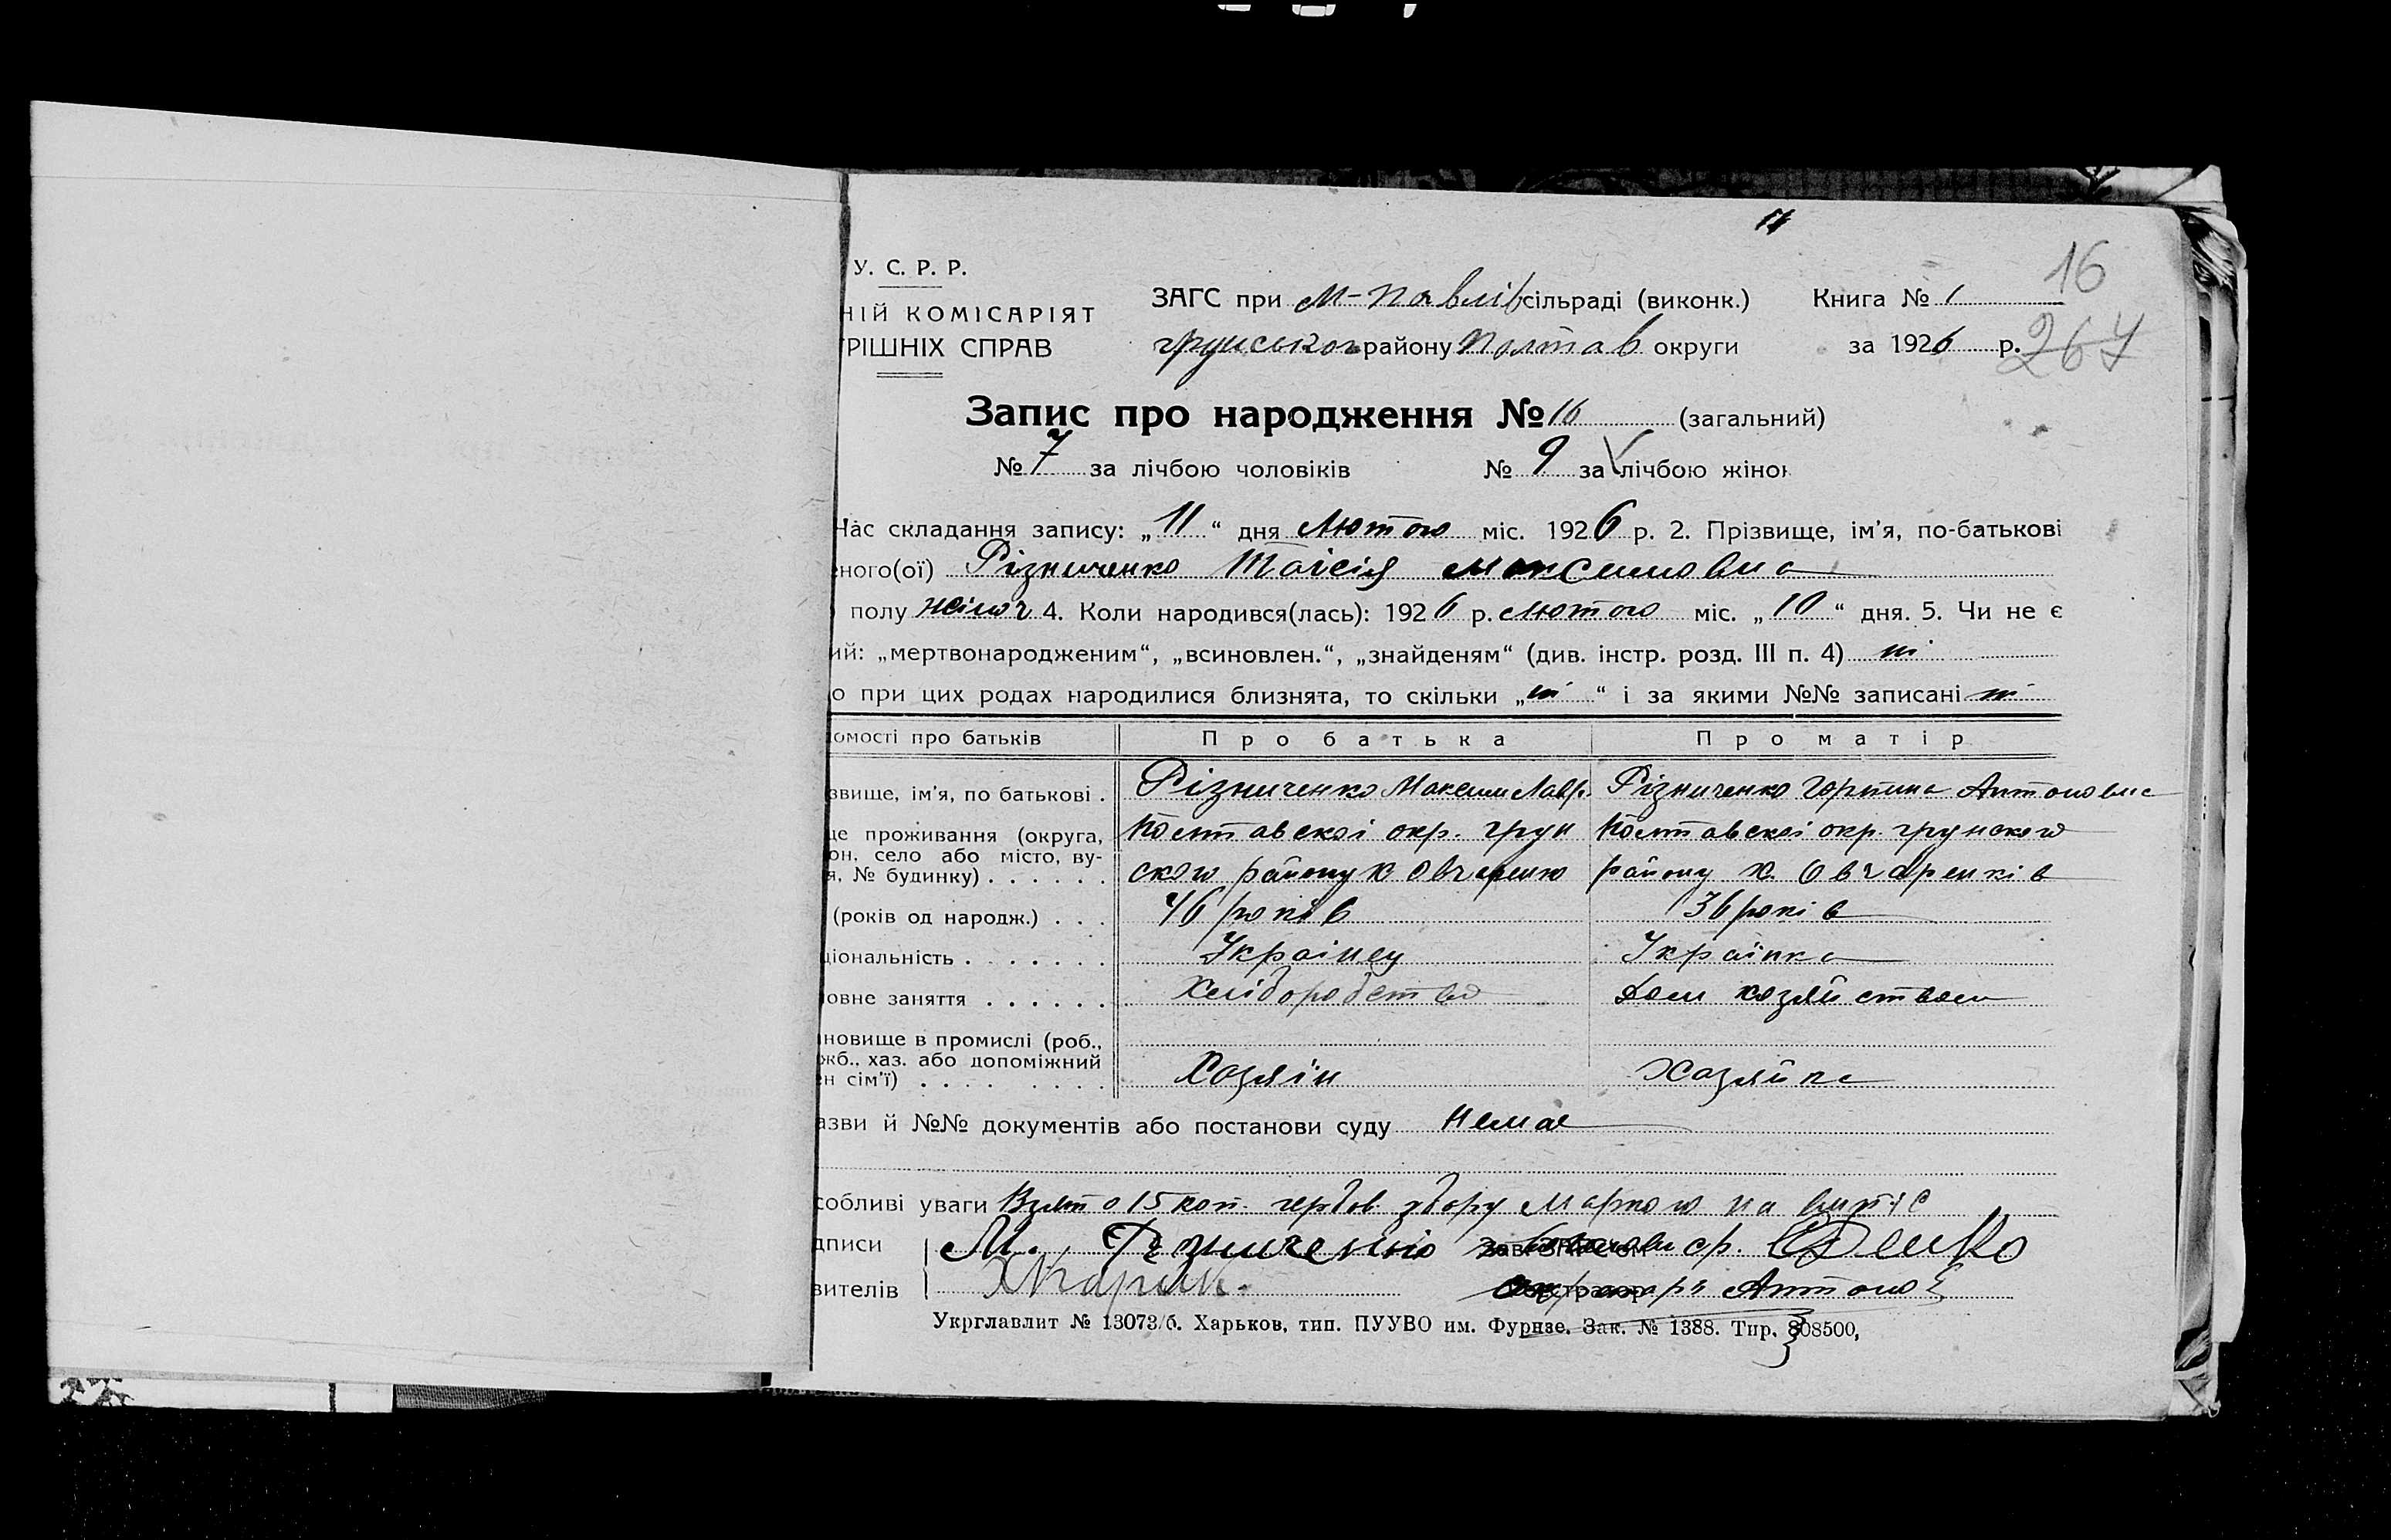 16
У. С. Р. Р.
ЗАГС при М-Павлів сільраді (виконк.) Книга № 1
НІЙ КОМІСАРІЯТ
РІШНІХ СПРАВ
грунського району Полтав округи за 1926 р.
267
Запис про народження № 16 (загальний)
№ 7 за лічбою чоловіків № 9 за лічбою жінок
Час складання запису: „11“ дня Лютого міс. 1926 р. 2. Прізвище, ім’я, по-батькові
ного(ої) Різниченко Таісія Максимовна
полу жіноч 4. Коли народився(лась): 1926 р. Лютого міс. „10“ дня. 5. Чи не є
ий: „мертвонародженим“, „всиновлен.“, „знайденям“ (див. інстр. розд. III п. 4) ні
о при цих родах народилися близнята, то скільки „ні“ і за якими №№ записані ні
омості про батьків Про батька Про матір
звище, ім’я, по батькові . Різниченко Максим Лавр. Різниченко Горпина Антоновна
це проживання (округа, Полтавскоі окр. грун Полтавскоі окр. грунского
он, село або місто, ву-
я, № будинку) . . . . . . ского району х. Овчаренко району х. Овчаренків
(років од народж.) . . . 46 років 36 років
ціональність . . . . . . . Украінец Украінка
овне заняття . . . . . . Хліборобство Дом хозяйством
новище в промислі (роб.,
жб., хаз. або допоміжний
ен сім’ї) . . . . . . . . Хозяін Хазяйка
азви й №№ документів або постанови суду немає
собливі уваги Взято 15 коп. гербов. збору Маркою на випис
дписи М. Різниченко
вителів секретарь Антонов
Укрглавлит № 13073/б. Харьков, тип. ПУУВО им. Фурнзе. Зак. № 1388. Тир. 808500,